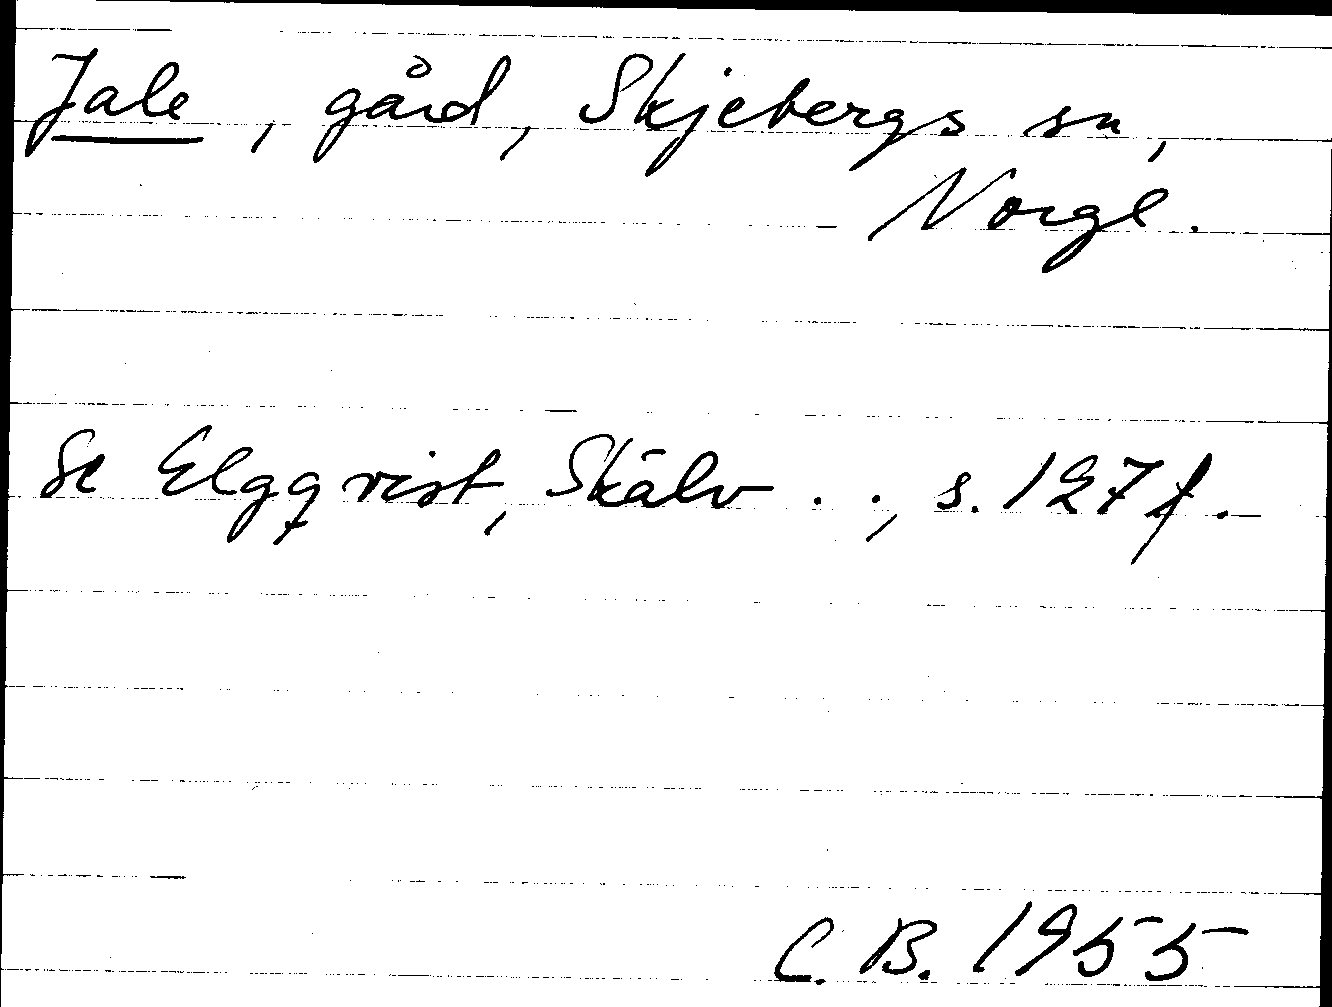 Jale, gård, Skjebergs sn,
Norge.
Se Elgqvist, Skälv . . , s. 127 f.
C. B. 1955